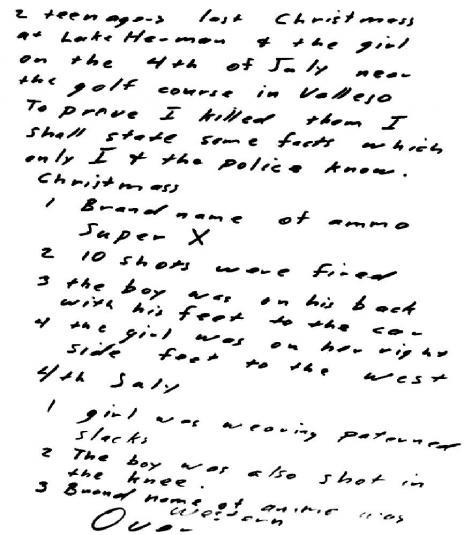 2 teenagers last Christmass
at Lake Herman & the girl
on the 4th of July near
the golf course in Vallejo
To prove I killed them I
shall state some facts which
only I & the police know.
Christmass
1 Brand name of ammo
Super X
2 10 shots were fired
3 the boy was on his back
with his feet to the car
4 the girl was on her right
side feet to the west
4th July
1 girl was wearing paterned
slacks
2 The boy was also shot in
the knee.
3 Brand name of ammo was
western
Over